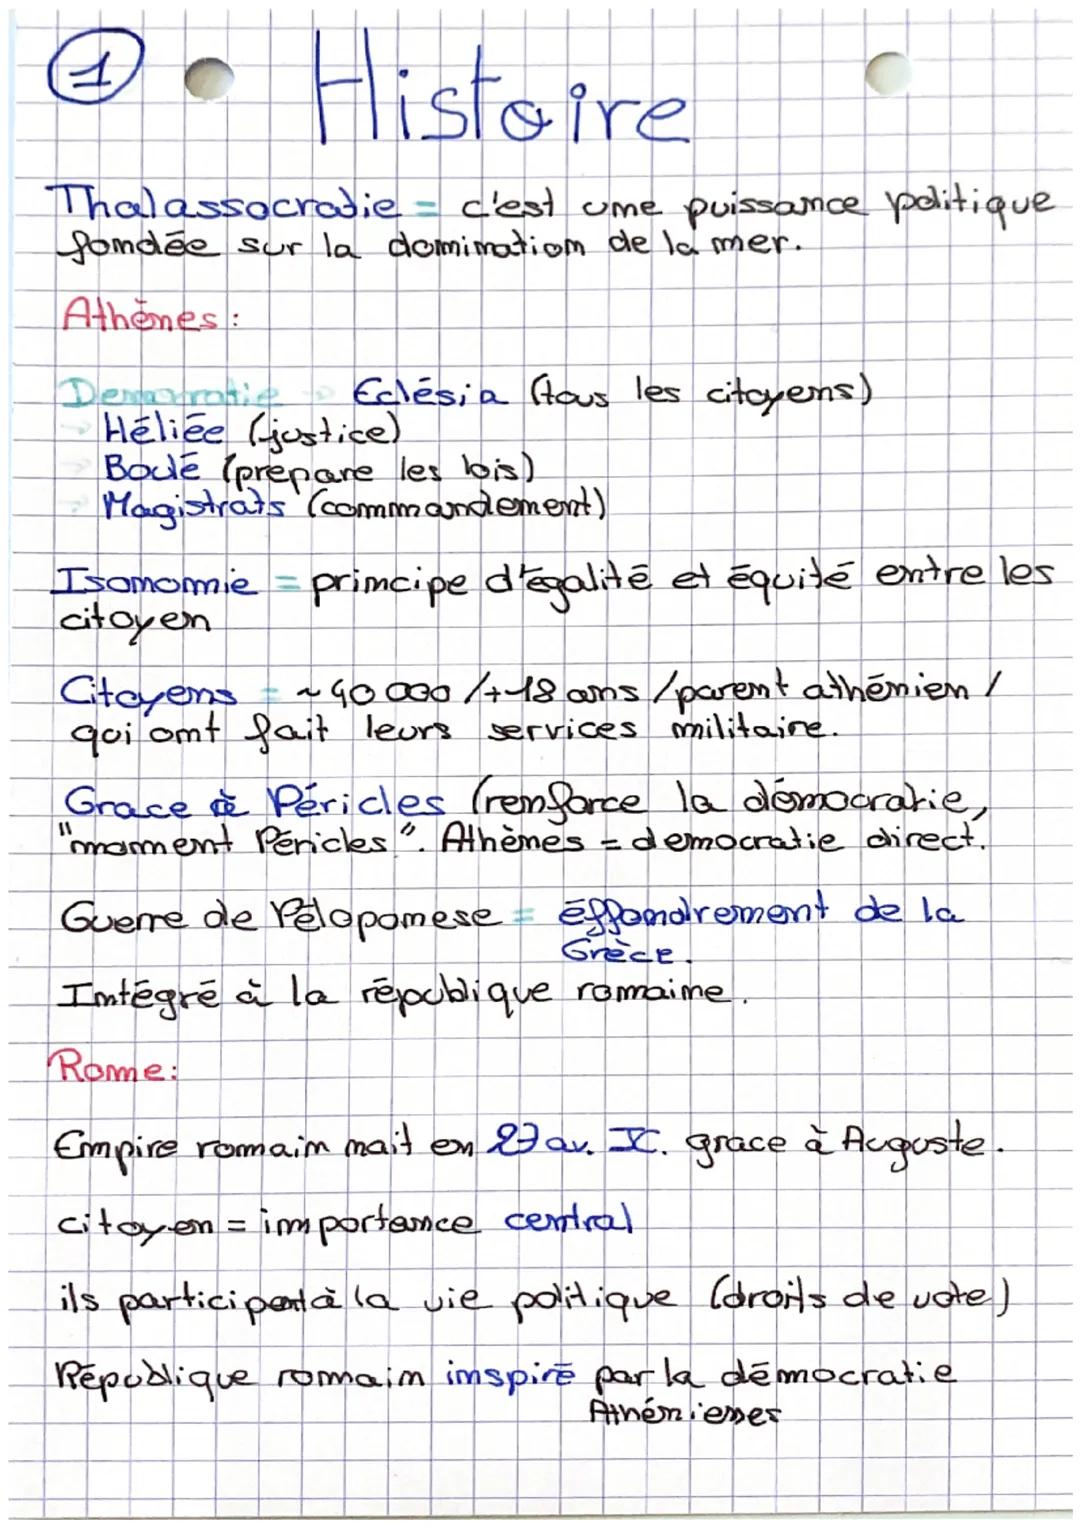 1
Histoire
Thalassocratie = c'est une puissance politique
fondée sur la domination de la mer.
Athènes :
Democratie → Eclésia (tous les citoyens)
→ Héliée (justice)
→ Boulé (prépare les lois)
→ Magistrats (commandement)
Isonomie = principe d'égalité et équité entre les
citoyen
Citoyens = ~40 000 /+18 ans /parent athénien /
qui ont fait leurs services militaire.
Grace à Péricles (renforce la démocratie,
"moment Péricles". Athènes = democratie direct.
Guerre de Péloponese = éffondrement de la
Grèce.
Intégré à la république romaine.
Rome:
Empire romain nait en 27 av. JC. grace à Auguste.
citoyen = importance central
ils participent à la vie politique (droits de vote)
République romain inspiré par la démocratie
Athéniennes